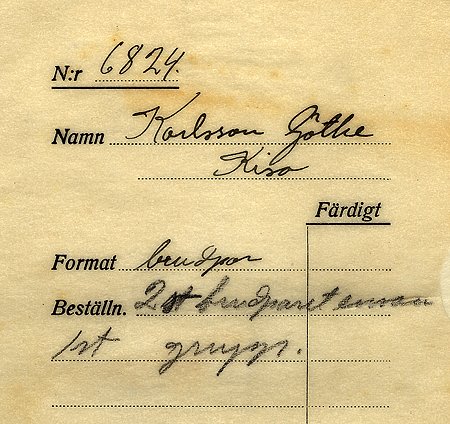 N:r 6824.
Namn Karlsson Göthe
Kisa
Färdigt
Format brudpar
Beställn. 2 st brudparet ensam
1 st grupp.